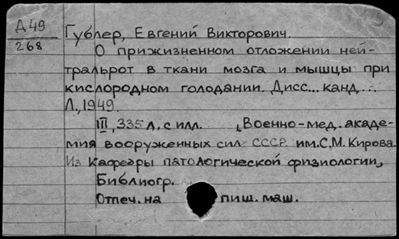 Д 49
268
Гублер, Евгений Викторович.
О прижизненном отложении ней-
тральрот в ткани мозга и мышцы при
кислородном голодании. Дисс... канд...
Л., 1949.
III, 335 л, с илл. (Военно-мед. акаде-
мия вооруженных сил СССР им. С.М. Кирова.
Из кафедры патологической физиологии)
Библиогр.
Отпеч. на пиш. маш.